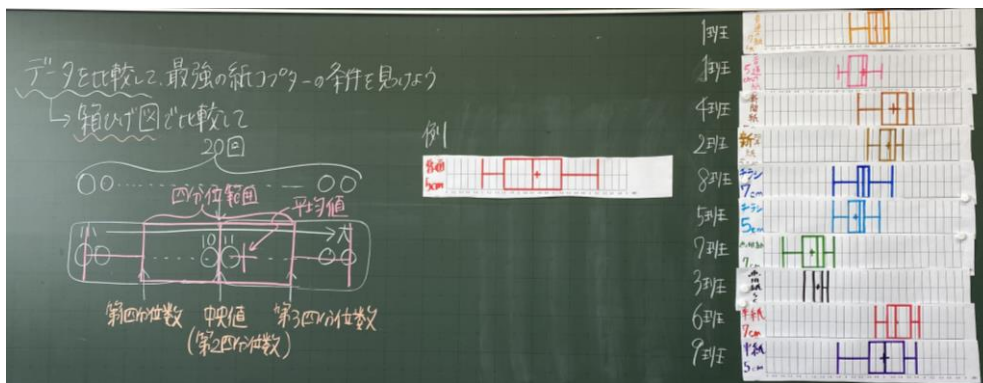 データを比較して、最強の紙コプターの条件を見つけよう
→箱ひげ図で比較して
20回
四分位範囲
平均値
小
大
10
11
第1四分位数
中央値
(第2四分位数)
第3四分位数
例
5cm
1班
1班
4班
2班
8班
チラシ
7cm
5班
チラシ
5cm
7班
7cm
3班
6班
半紙
7cm
9班
半紙
5cm